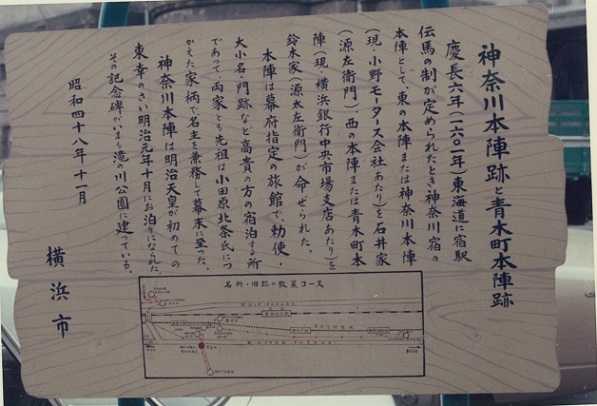 神奈川本陣跡と青木町本陣跡
慶長六年(一六〇一年)東海道に宿駅
伝馬の制が定められたとき神奈川宿の
本陣として、東の本陣または神奈川本陣
(現・小野モータース会社あたり)を石井家
(源左衛門)西の本陣または青木町本
陣(現・横浜銀行中央市場支店あたり)を
鈴木家(源太左衛門)が命ぜられた。
本陣は幕府指定の旅館で、勅使・
大小名・門跡など高貴の方の宿泊する所
であって、両家とも先祖は小田原北条氏につ
かえた家柄で名主を兼務して幕末に至った。
神奈川本陣は明治天皇が初めての
東幸のさい明治元年十月にお泊りになられた。
その記念碑がいまも滝の川公園に建っている。
昭和四十八年十一月
横浜市
名所・旧跡の散策コース